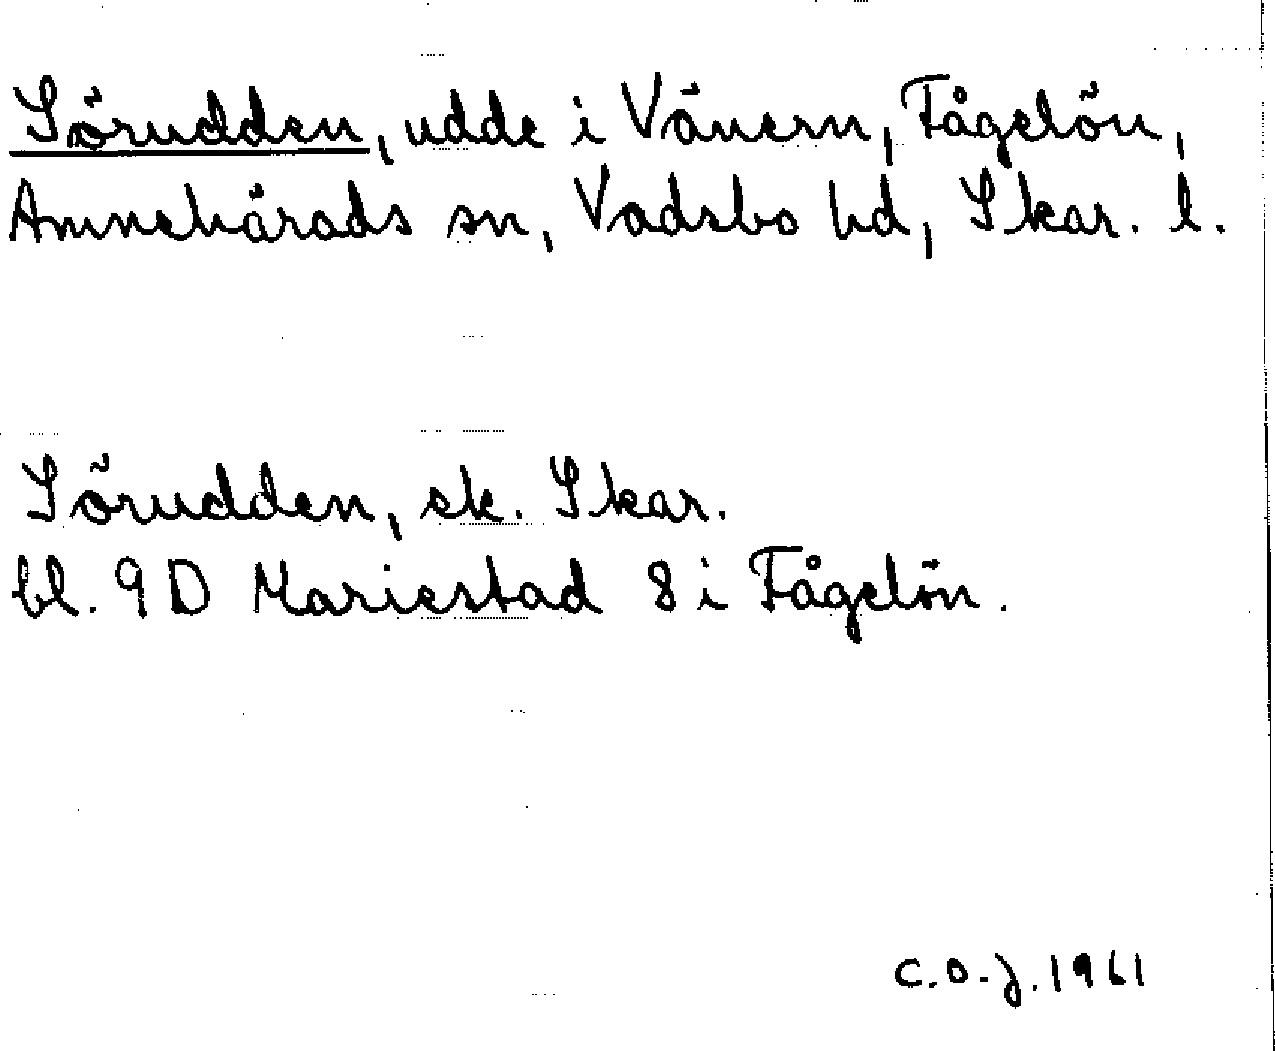 Sörudden, udde i Vänern, Fågelön,
Amnehärads sn, Vadsbo hd, Skar. l.
Sörudden, ek. Skar.
bl. 9D Mariestad 8 i Fågelön.
C.O-J. 1961